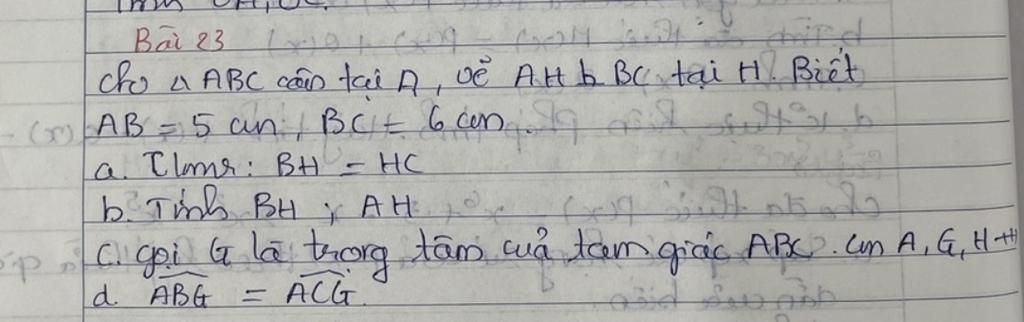 Bài 23
Cho △ ABC cân tại A, vẽ AH ⊥ BC tại H. Biết
AB = 5 cm, BC = 6 cm.
a. Cmr: BH = HC
b. Tính BH, AH
c. gọi G là trọng tâm cuả tam giác ABC. Cm A, G, H
d. ABG = ACG.